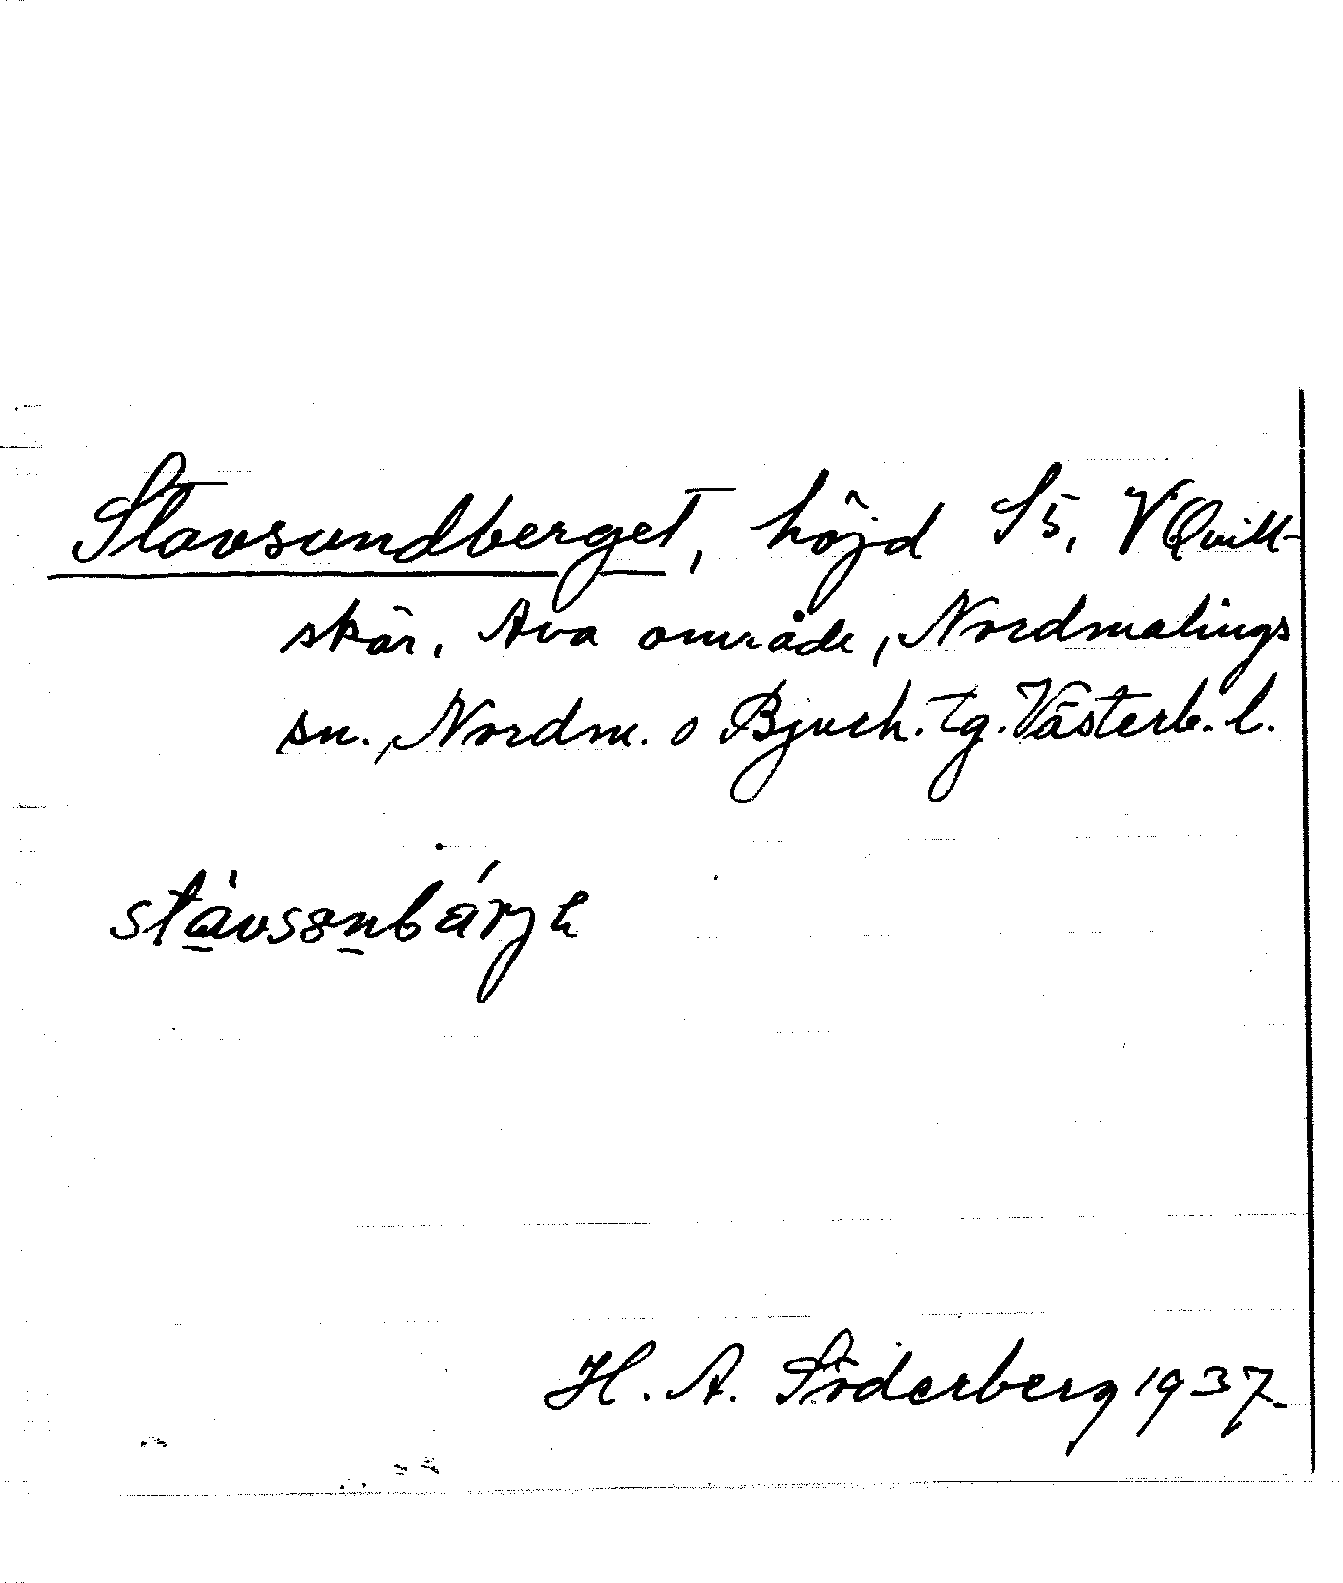 Stavsundberget, höjd Sö, V Quill-
skär, Ava område, Nordmalings
sn., Nordm. o Bjurh. tg. Västerb. l.
H. A. Söderberg 1937.